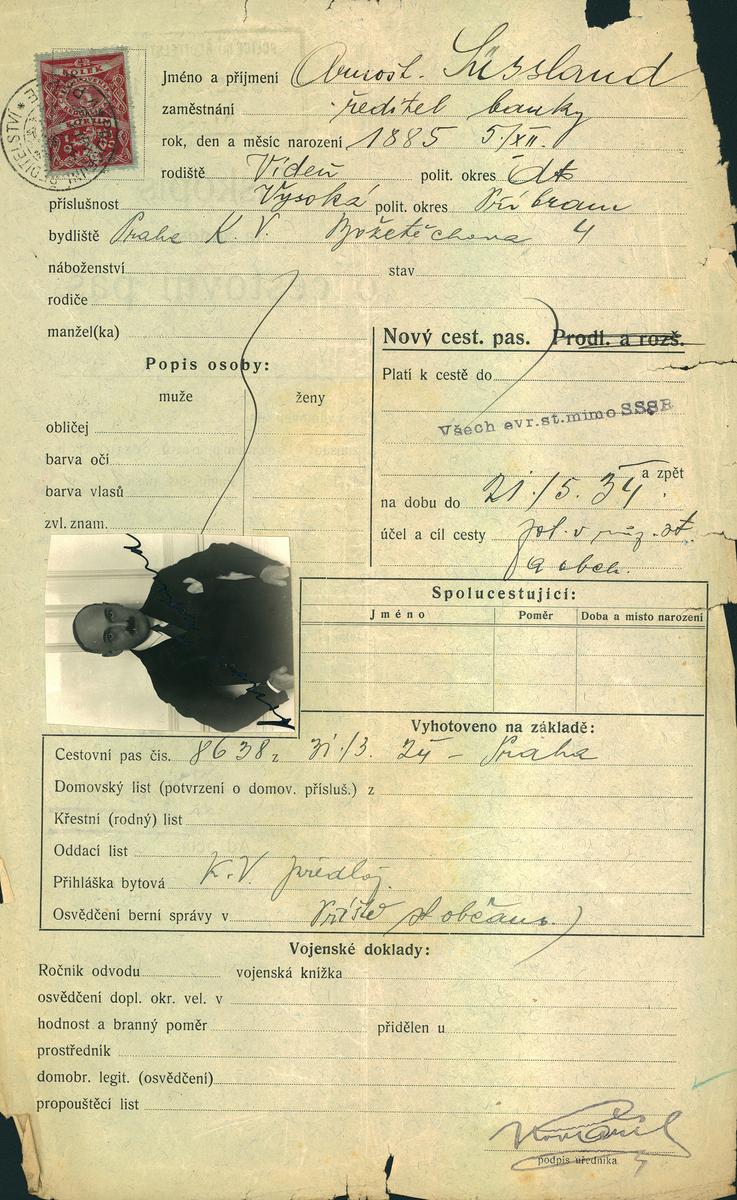 Jméno a příjmení Arnošt. Süssland
zaměstnání ředitel banky
rok, den a měsíc narození 1885 5./XII.
rodiště Vídeň polit. okres dto
příslušnost Vysoká polit. okres Příbram
bydliště Praha K V. Božetěchova 4
náboženství stav
rodiče
manžel(ka)
Nový cest. pas. Prodl. a rozš.
Popis osoby:
muže ženy
obličej
barva očí
barva vlasů
zvl. znam.
Platí k cestě do
Všech evr.st.mimo SSSR
a zpět
na dobu do 21./5. 34.
účel a cíl cesty
a obch.
Spolucestující:
Jméno Poměr Doba a místo narození
Vyhotoveno na základě:
Cestovní pas čís. 8638 z 31./3. Praha
Domovský list (potvrzení o domov. přísluš.) z
Křestní (rodný) list
Oddací list
Přihláška bytová K.V. předlož.
Osvědčení berní správy v st občans.
Vojenské doklady:
Ročník odvodu vojenská knížka
osvědčení dopl. okr. vel. v
hodnost a branný poměr přidělen u
prostředník
domobr. legit. (osvědčení)
propouštěcí list
podpis úředníka